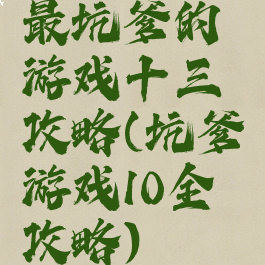 最坑爹的
游戏十三
攻略(坑爹
游戏10全
攻略)